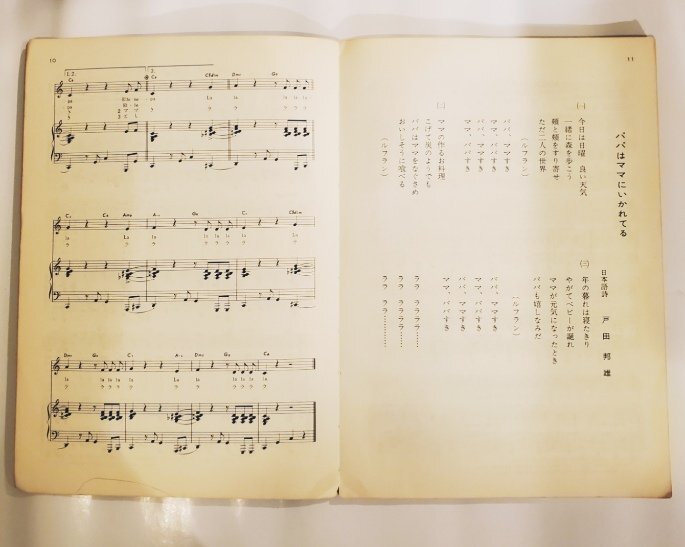 10
1.2.
3.
C6
C6
C♯dim
Dm7
G9
la
La
la
ラ
ラ
C6
C6
Am6
A7
G9
C6
C♯dim
la
La
la
la
la
la
ラ
ラ
ラ
ラ
ラ
ラ
Dm7
G9
C6
A7
Dm7
G9
C6
la
la la la
la
la
la la la
la
ラ
ラ ラ ラ
ラ
ラ
ラ ラ ラ
ラ
11
パパはママにいかれてる
日本語詩 戸田邦雄
㈠ 今日は日曜 良い天気
一緒に森を歩こう
頬と頬をすり寄せ
ただ二人の世界
(ルフラン)
パパ、ママすき
ママ、パパすき
パパ、ママすき
ママ、パパすき
㈡ ママの作るお料理
こげて炭のようでも
パパはママをなぐさめ
おいしそうに喰べる
(ルフラン)
㈢ 年の暮れは寝たきり
やがてベビーが誕れ
ママが元気になったとき
パパも嬉しなみだ
(ルフラン)
パパ、ママすき
ママ、パパすき
パパ、ママすき
ママ、パパすき
ララ ララララ……
ララ ララララ……
ララ ララ…………